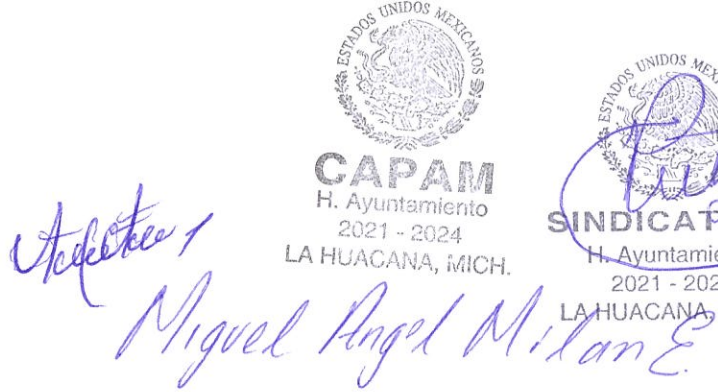 ESTADOS UNIDOS MEXICANOS
CAPAM
H. Ayuntamiento
2021 - 2024
LA HUACANA, MICH.
ESTADOS UNIDOS MEX
SINDICAT
H. Ayuntamie
2021 - 202
LA HUACANA,
Miguel Angel Milan E.